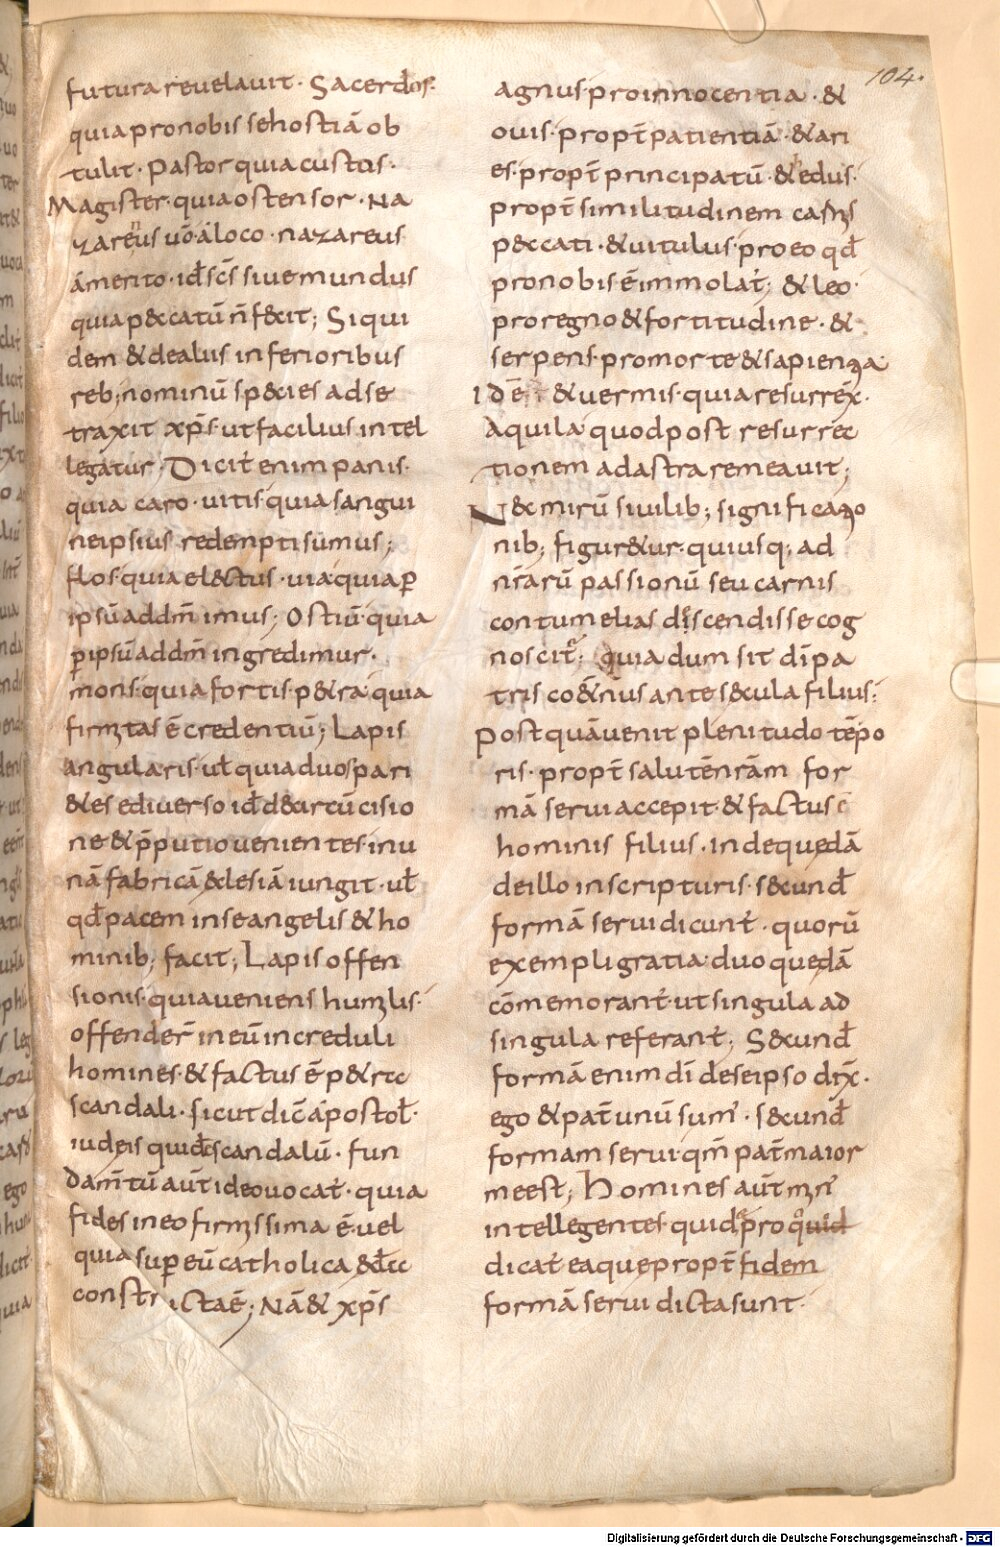 104.
futura reuelauit · Sacerdos·
quia pro nobis se hostiā ob
tulit · Pastor quia custus·
Magister· quia ostensor · Na
zareus uō á loco · nazareus
ámerito · id̄ sc̄s siue mundus
quia p&catū n̄ f&cit; Siqui
dem & de alus inferioribus
reb; nominū sp&ies ad se
traxit xp̄s· ut facilius intel
legatur· Dicit̄ enim panis·
quia caro · uitis· quia sangui
ne ipsius redempti sumus;
flos· quia el&ctus · uia· quia ꝑ
ipsū ad dm̄ imus; Ostiū· quia
ꝑ ipsū ad dm̄ ingredimur·
mons· quia fortis· p&ra· quia
firmitas ē credentiū; Lapis
angularis· ul̄ quia duos pari
&es e diuerso id̄ d& circūcisio
ne & p̄putio uenientes in u
nā fabricā &clesiā iungit · ul̄
qd̄ pacem in se angelis & ho
minib; facit; Lapis offen
sionis· quia ueniens humilis·
offender̄ in eū increduli
homines· & factus ē p&re
scandali · sicut dic̄ apostol̄·
iudeis quidē scandalū · fun
dam̄tū aūt ideo uocat̄ · quia
fides in eo firmissima ē· uel
quia super eū catholica &cl̄
constructa ē; Nā & xp̄s
agnus· pro innocentia · &
ouis· propt̄ patientiā · & ari
es· propt̄ principatū · & edus·
propt̄ similitudinem carnis
p&cati · & uitulus· pro eo qd̄
pro nobis ē immolat̄; & leo·
pro regno & fortitudine · &
serpens· pro morte & sapientia
Idē & uermis· quia resurréx·
Aquila quod post resurrec
tionem ad astra remeauit;
N&c mirū si uilib; significatio
nib; figur&ur· qui usq; ad
nr̄arū passionū seu carnis
contumelias discendisse cog
noscit̄; quia dum sit dī pa
tris co&n̄us ante s&cula filius;
Post quā uenit plenitudo tēpo
ris· propt̄ salutē nr̄am for
mā serui accepit· & factus ē
hominis filius · inde quedā
de illo in scripturis· s&cund̄
formā serui dicunt̄ · quorū
exempli gratia· duo quedā
cōmemorant̄· ut singula ad
singula referant̄; S&cund̄
formā enim dī de se ipso dix̄·
ego & pat̄ unū sum̄ · s&cund̄
formam serui· qm̄ pat̄ maior
me est; Homines aūt min̄
intellegentes· quid pro quid
dicat̄ ea que propt̄ fidem
formā serui dicta sunt·
Digitalisierung gefördert durch die Deutsche Forschungsgemeinschaft - DFG